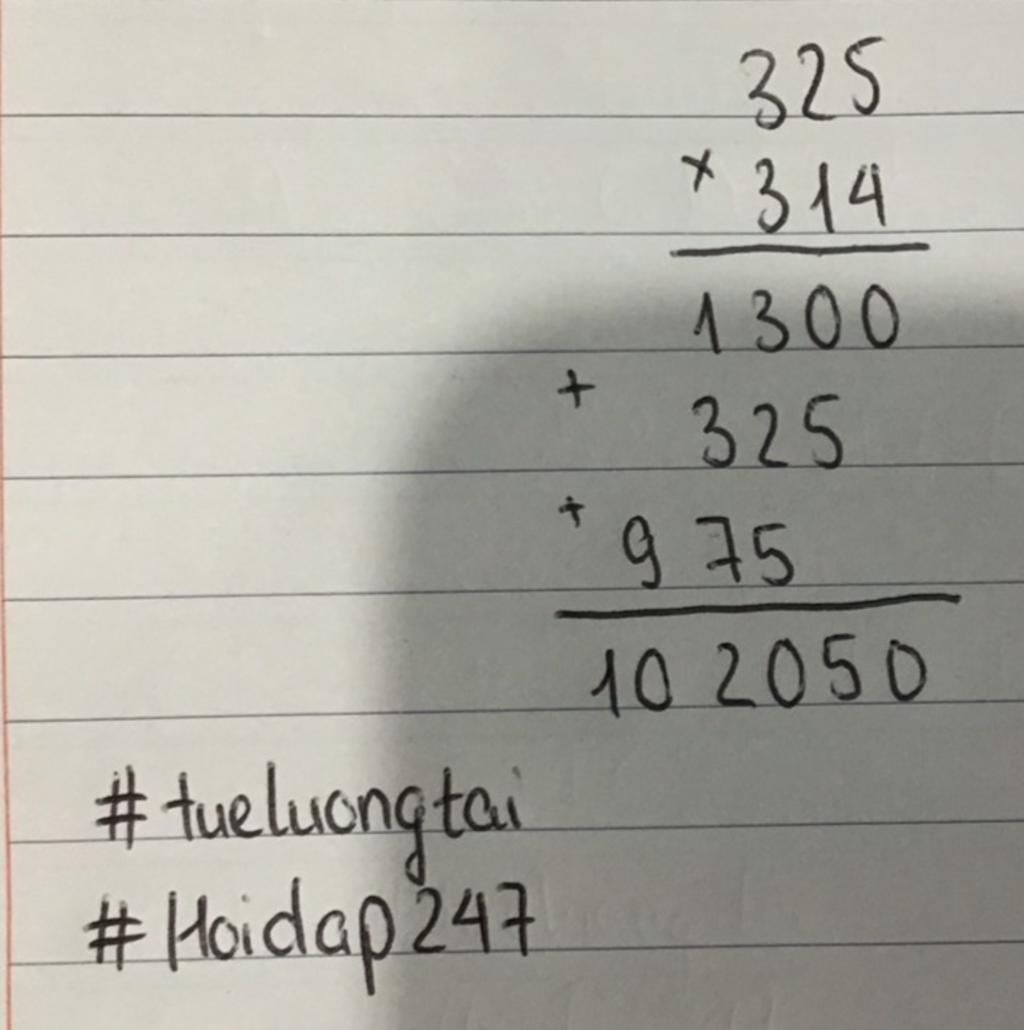 325
× 314
1300
+ 325
+ 975
102050
#tueluongtai
#Hoidap247